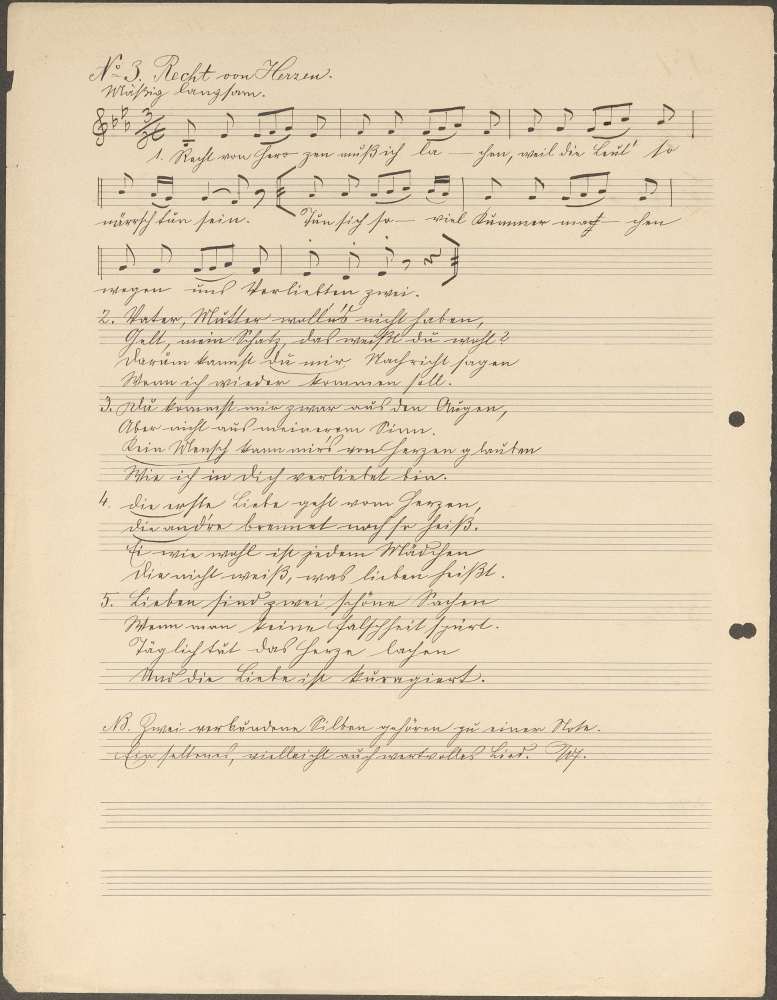 No 3. Recht von Herzen.
Mäßig langsam.
3/8
1. Recht von Her- zen muß ich la - chen, weil die Leut' so
närrsch tun sein. Tun sich so- viel Kummer mach - chen
wegen uns Verliebten zwei.
2. Vater, Mutter woll'n's nicht haben,
Gelt, mein Schatz, das weißt du wohl?
Darum kannst du mir Nachricht sagen
Wenn ich wieder kommen soll.
3. Du kommst mir zwar aus den Augen,
Aber nicht aus meinerem Sinn.
Kein Mensch kann mir's von Herzen glauben
Wie ich in dich verliebet bin.
4. Die erste Liebe geht vom Herzen,
Die andre brennet noch so heiß.
Ei wie wohl ist jedem Mädchen
Die nicht weiß, was lieben heißt.
5. Lieben sind zwei schöne Sachen
Wenn man keine Falschheit spürt.
Täglich tut das Herze lachen
Und die Liebe ist kuragiert.
NB. Zwei verbundene Silben gehören zu einer Note.
Ein seltenes, vielleicht auch wertvolles Lied.